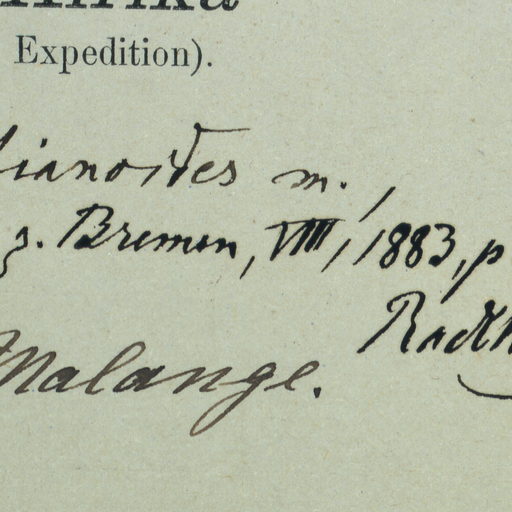 Expedition).
ianoides m.,
s. Bremen, VIII, 1883, p
Malange.